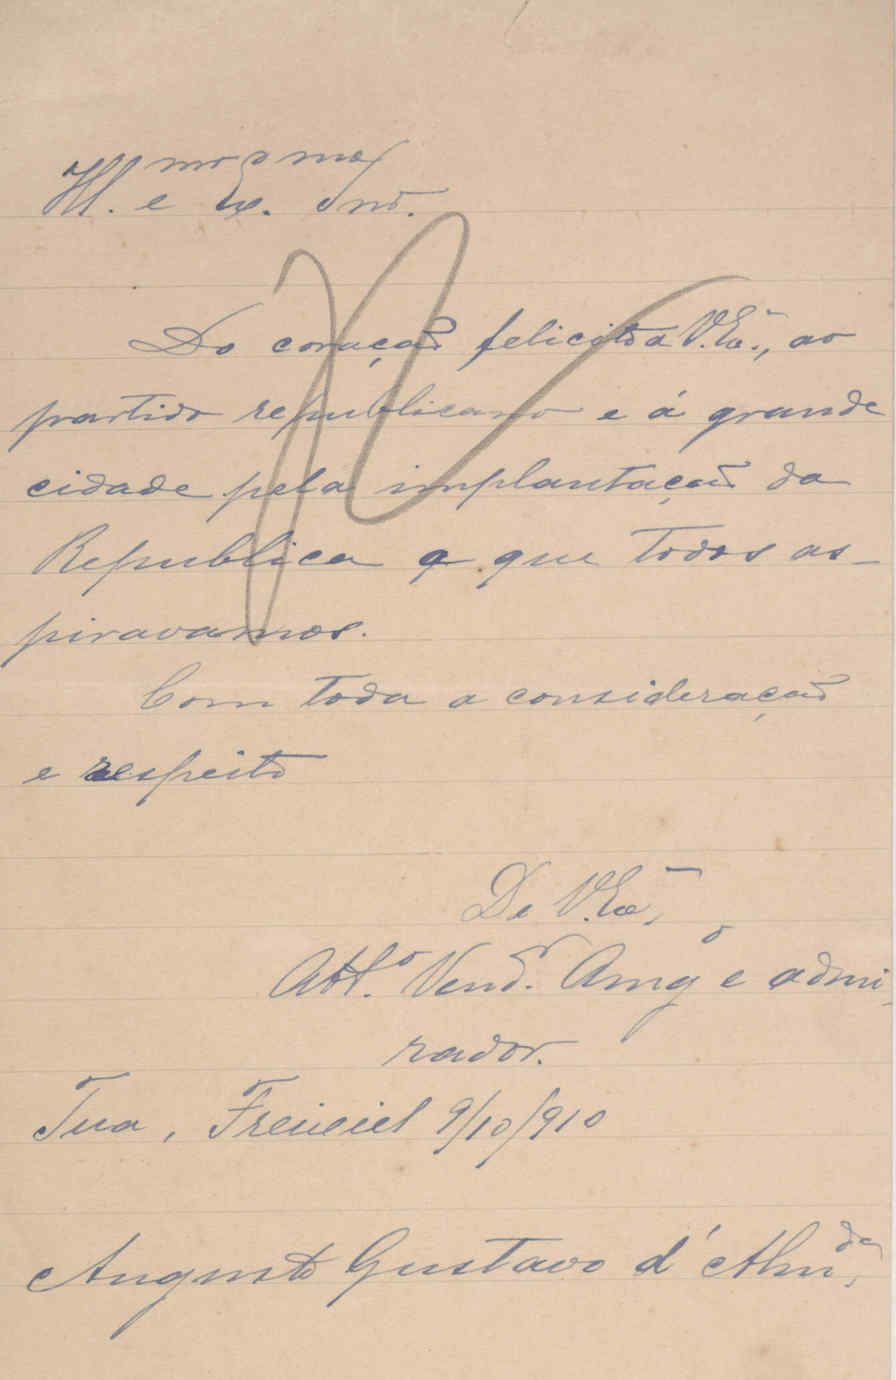 Ill.mo e Ex.mo Snr.
Do coração felicito a V. Exª., ao
partido republicano e á grande
cidade pela implantação da
Republica a que todos as-
piravamos.
Com toda a consideração
e respeito
De V. Exª,
Att.º Vend.or Amg.º e admi-
rador.
Tua, Freixiel 9/10/910
Augusto Gustavo d'Almda.